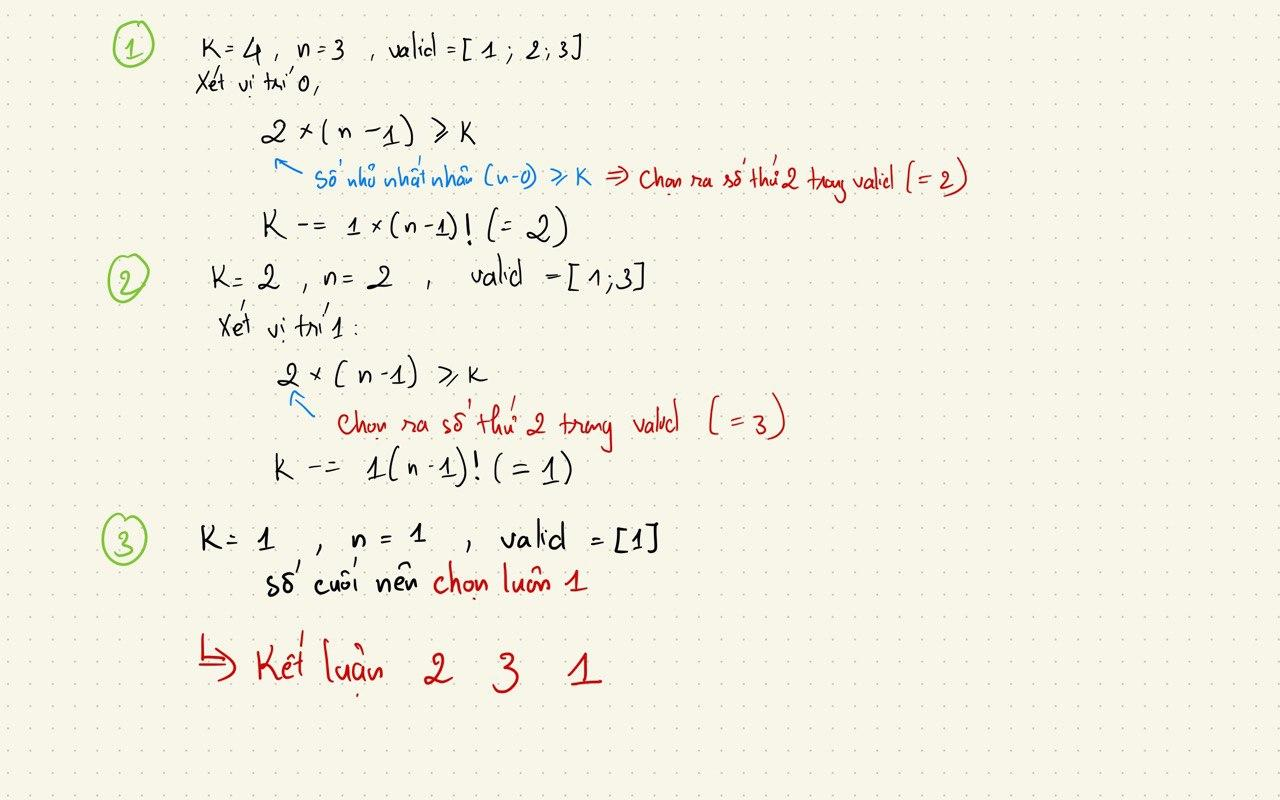 1
K = 4 , n = 3 , valid = [ 1 ; 2 ; 3 ]
Xét vị trí 0,
2 × ( n - 1 ) ⩾ K
Số nhỏ nhất nhân (n-0) ⩾ K ⇒ Chọn ra số thứ 2 trong valid ( = 2 )
K -= 1 × (n-1)! ( = 2 )
2
K = 2 , n = 2 , valid = [ 1 ; 3 ]
Xét vị trí 1 :
2 × ( n - 1 ) ⩾ K
Chọn ra số thứ 2 trong valid ( = 3 )
K -= 1(n-1)! ( = 1 )
3
K = 1 , n = 1 , valid = [1]
số cuối nên chọn luôn 1
↳ Kết luận 2 3 1